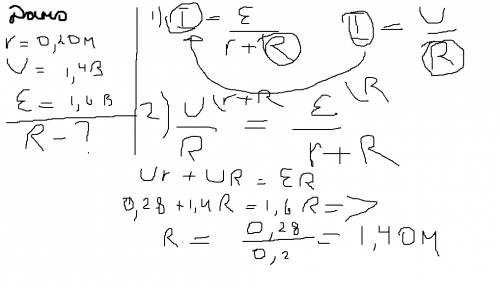 Дано
r = 0,2 Ом
U = 1,4 В
ε = 1,6 В
R - ?
1) I = ε / (r + R) I = U / R
2) U \r+R / R = ε \R / (r + R)
Ur + UR = εR
0,28 + 1,4 R = 1,6 R =>
R = 0,28 / 0,2 = 1,4 Ом